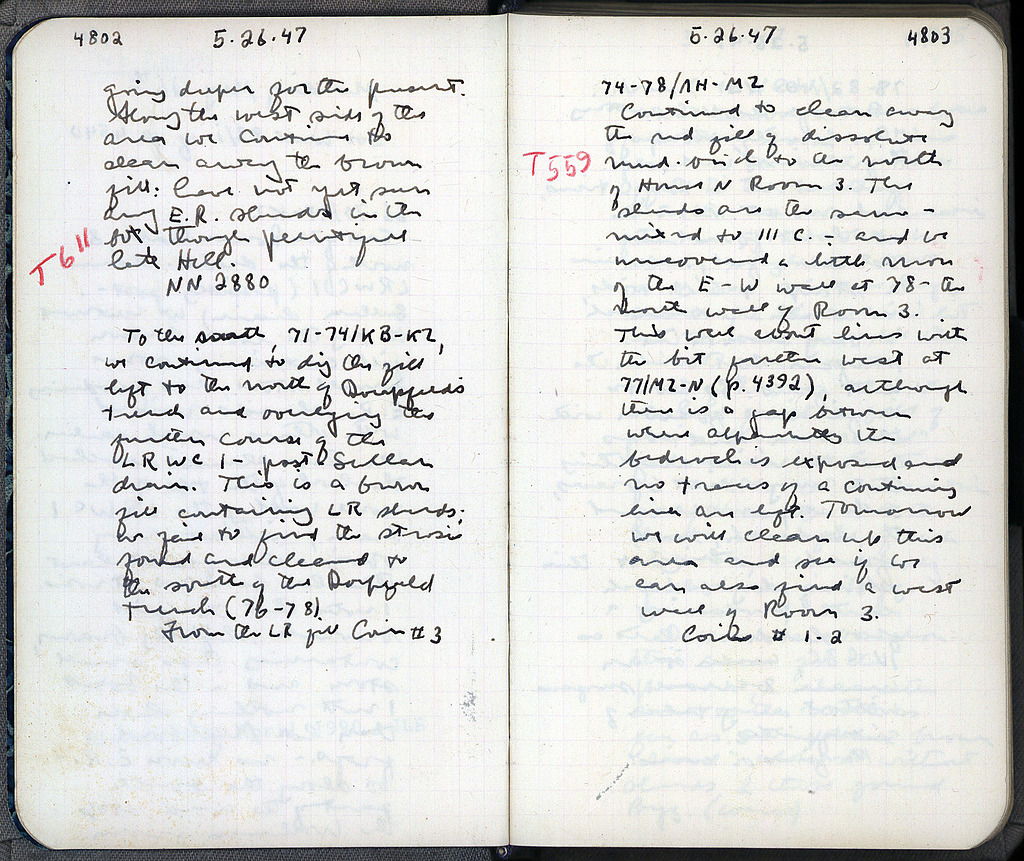 4802 5·26·47
going deeper for the present.
Along the west side of the
area we continue to
clean away the brown
fill: have not yet seen
any E.R. sherds in the
but though plentiful
late Hell.
T6"
NN 2880
To the south, 71-74/KB-KZ,
we continued to dig the fill
left to the north of Doerpfeld's
trench and overlying the
further course of the
LR WC 1- post Sullan
drain. This is a brown
fill containing LR sherds.
we fail to find the strosis
found and cleaned to
the south of the Dorpfeld
trench (76-78)
From the LR fill Coin #3
5·26·47 4803
74-78/ΛH-MZ
Continued to clean away
the red fill of dissolute
T559
mud-brick to the north
of House N Room 3. The
sherds are the same -
mixed to III C. : and we
uncovered a little more
of the E-W wall at 78- the
North wall of Room 3.
This wall about lines with
the bit further west at
77/MZ-N (p. 4392), although
there is a gap between
where apparently the
bedrock is exposed and
no traces of a continuing
line are left. Tomorrow
we will clean up this
area and see if we
can also find a west
wall of Room 3.
Coins # 1-2